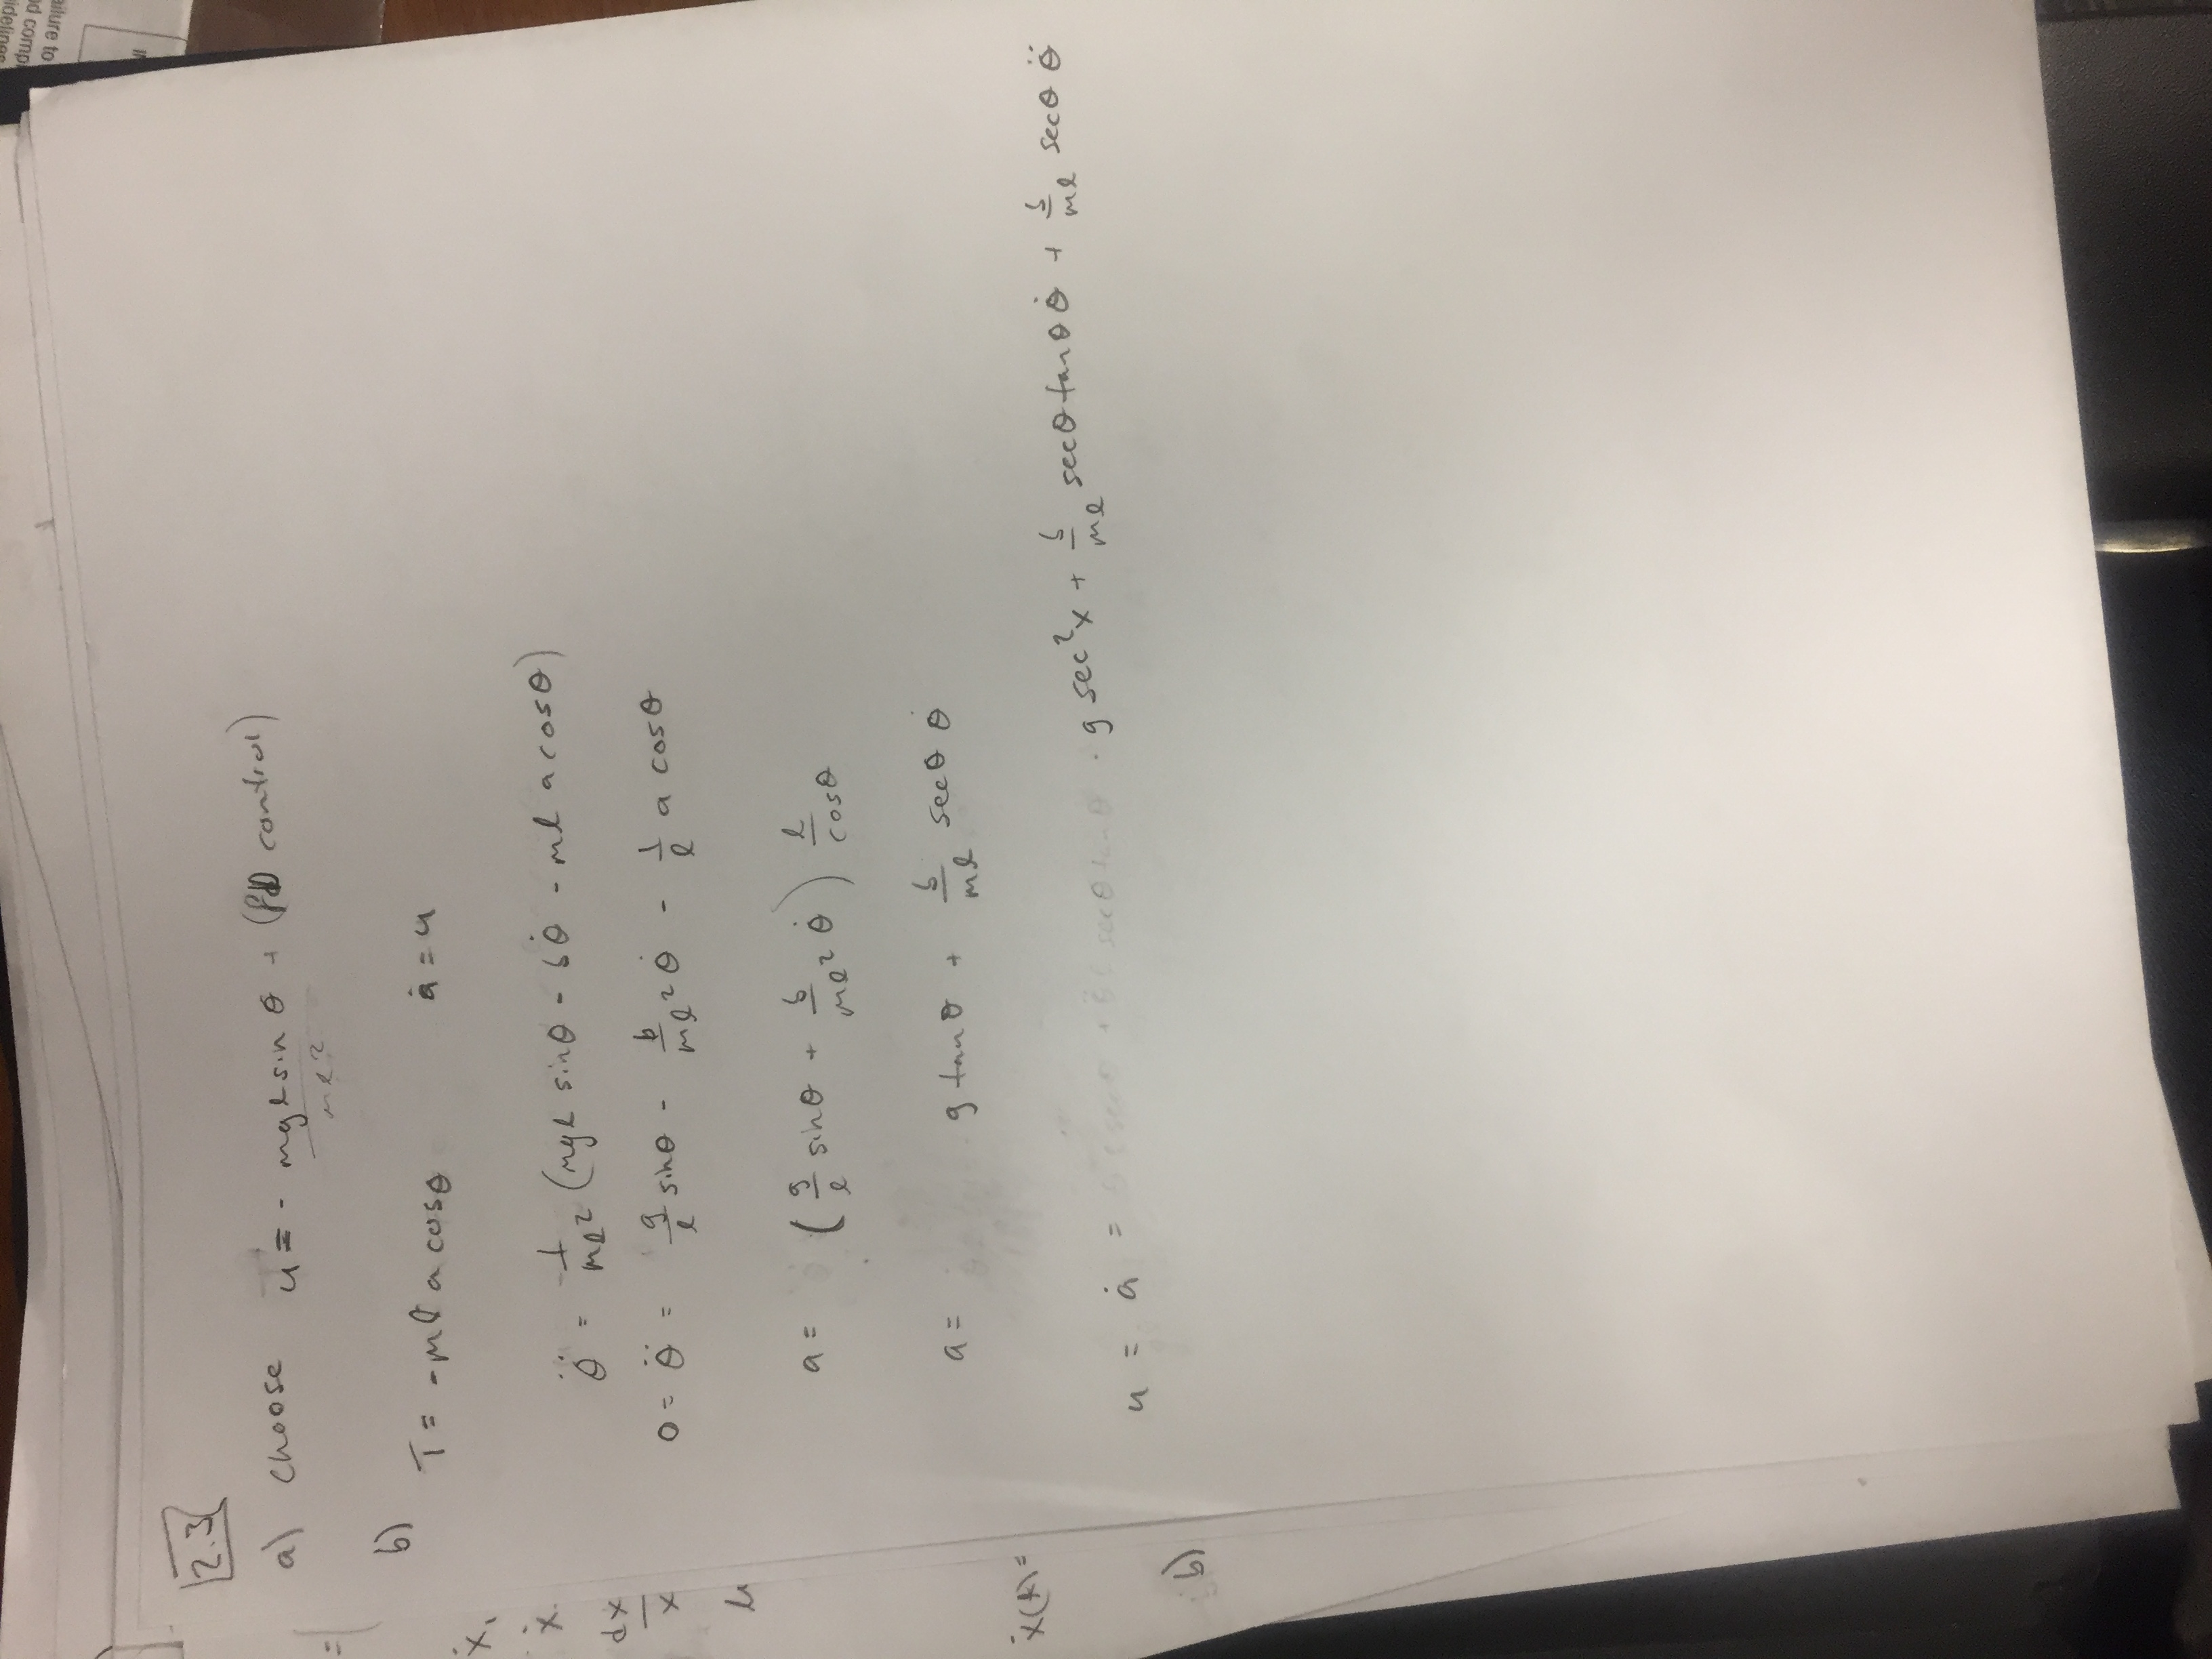 2.3
a) choose u = - mgl sin θ / ml² + (PD control)
b)
T = -ml a cosθ    ȧ = u
θ̈ = 1/ml² (mgl sinθ - bθ̇ - ml a cosθ)
0 = θ̈ = g/l sinθ - b/ml² θ̇ - 1/l a cosθ
a = (g/l sinθ + b/ml² θ̇) l/cosθ
a = g tanθ + b/ml secθ θ̇
u = ȧ = g sec²x + b/ml secθ tanθ θ̇ + b/ml secθ θ̈
b)
=(
ẋ,
ẋ.
dx
x
u
ẋ(t) =
idelines
d comp
ailure to